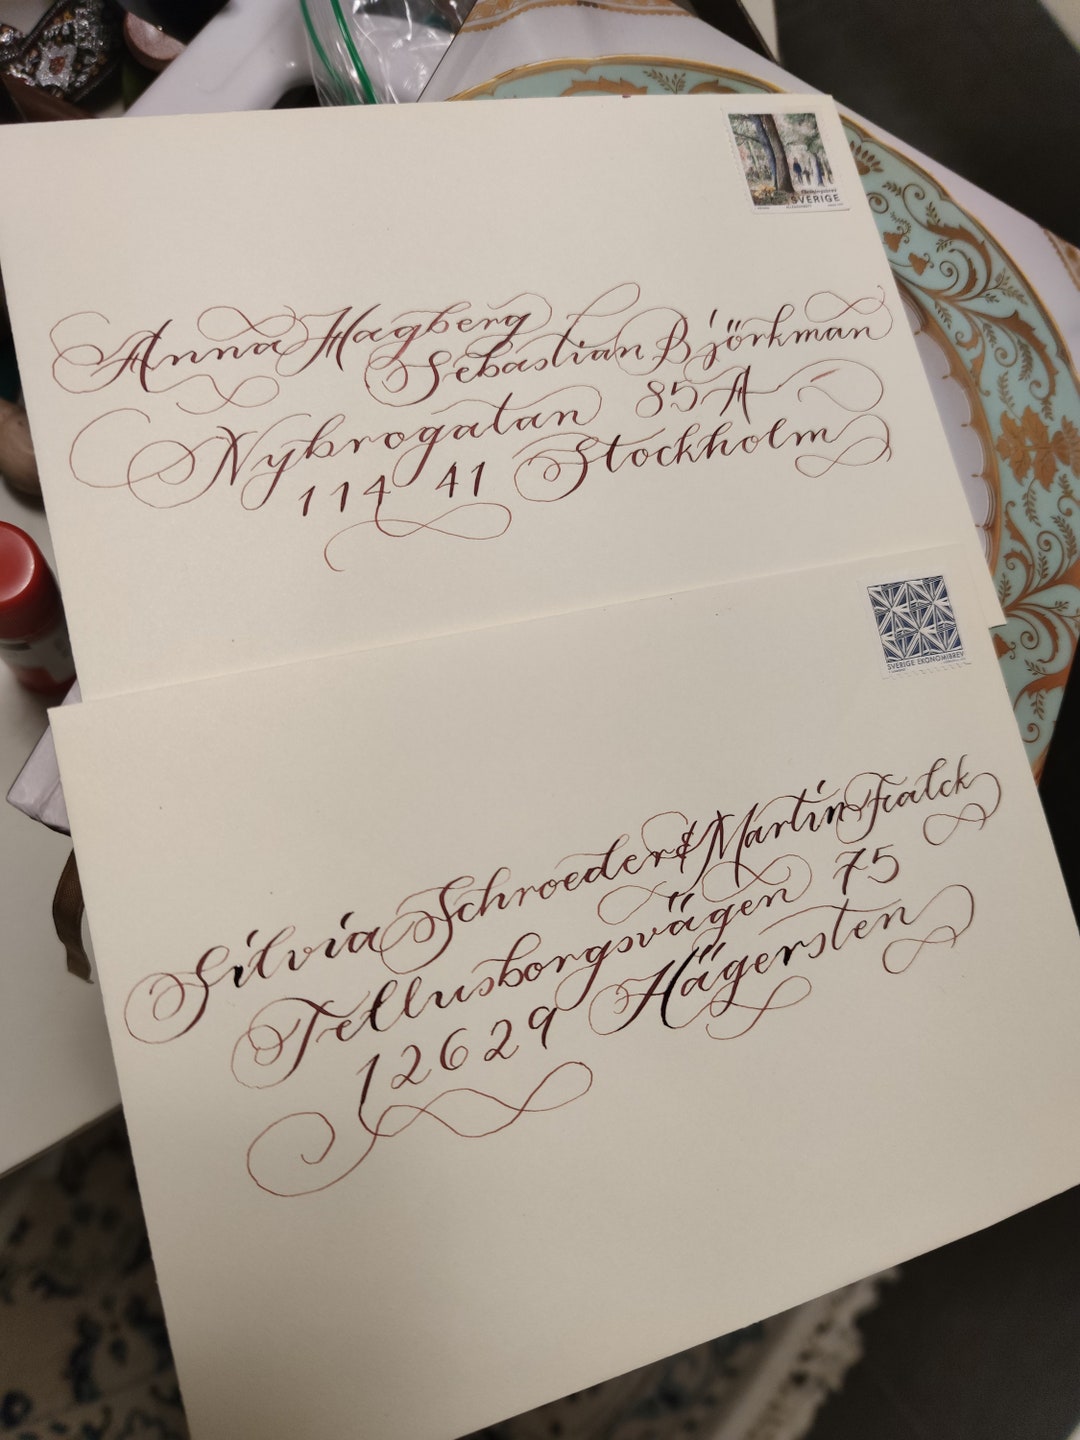 SVERIGE
Anna Hagberg
Sebastian Björkman
Nybrogatan 85 A
114 41 Stockholm
SVERIGE EKONOMIBREV
Silvia Schroeder & Martin Fralck
Tellusborgsvägen 75
12629 Hägersten